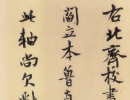 右北齊校書
閻立本魯直
此軸尚欠對